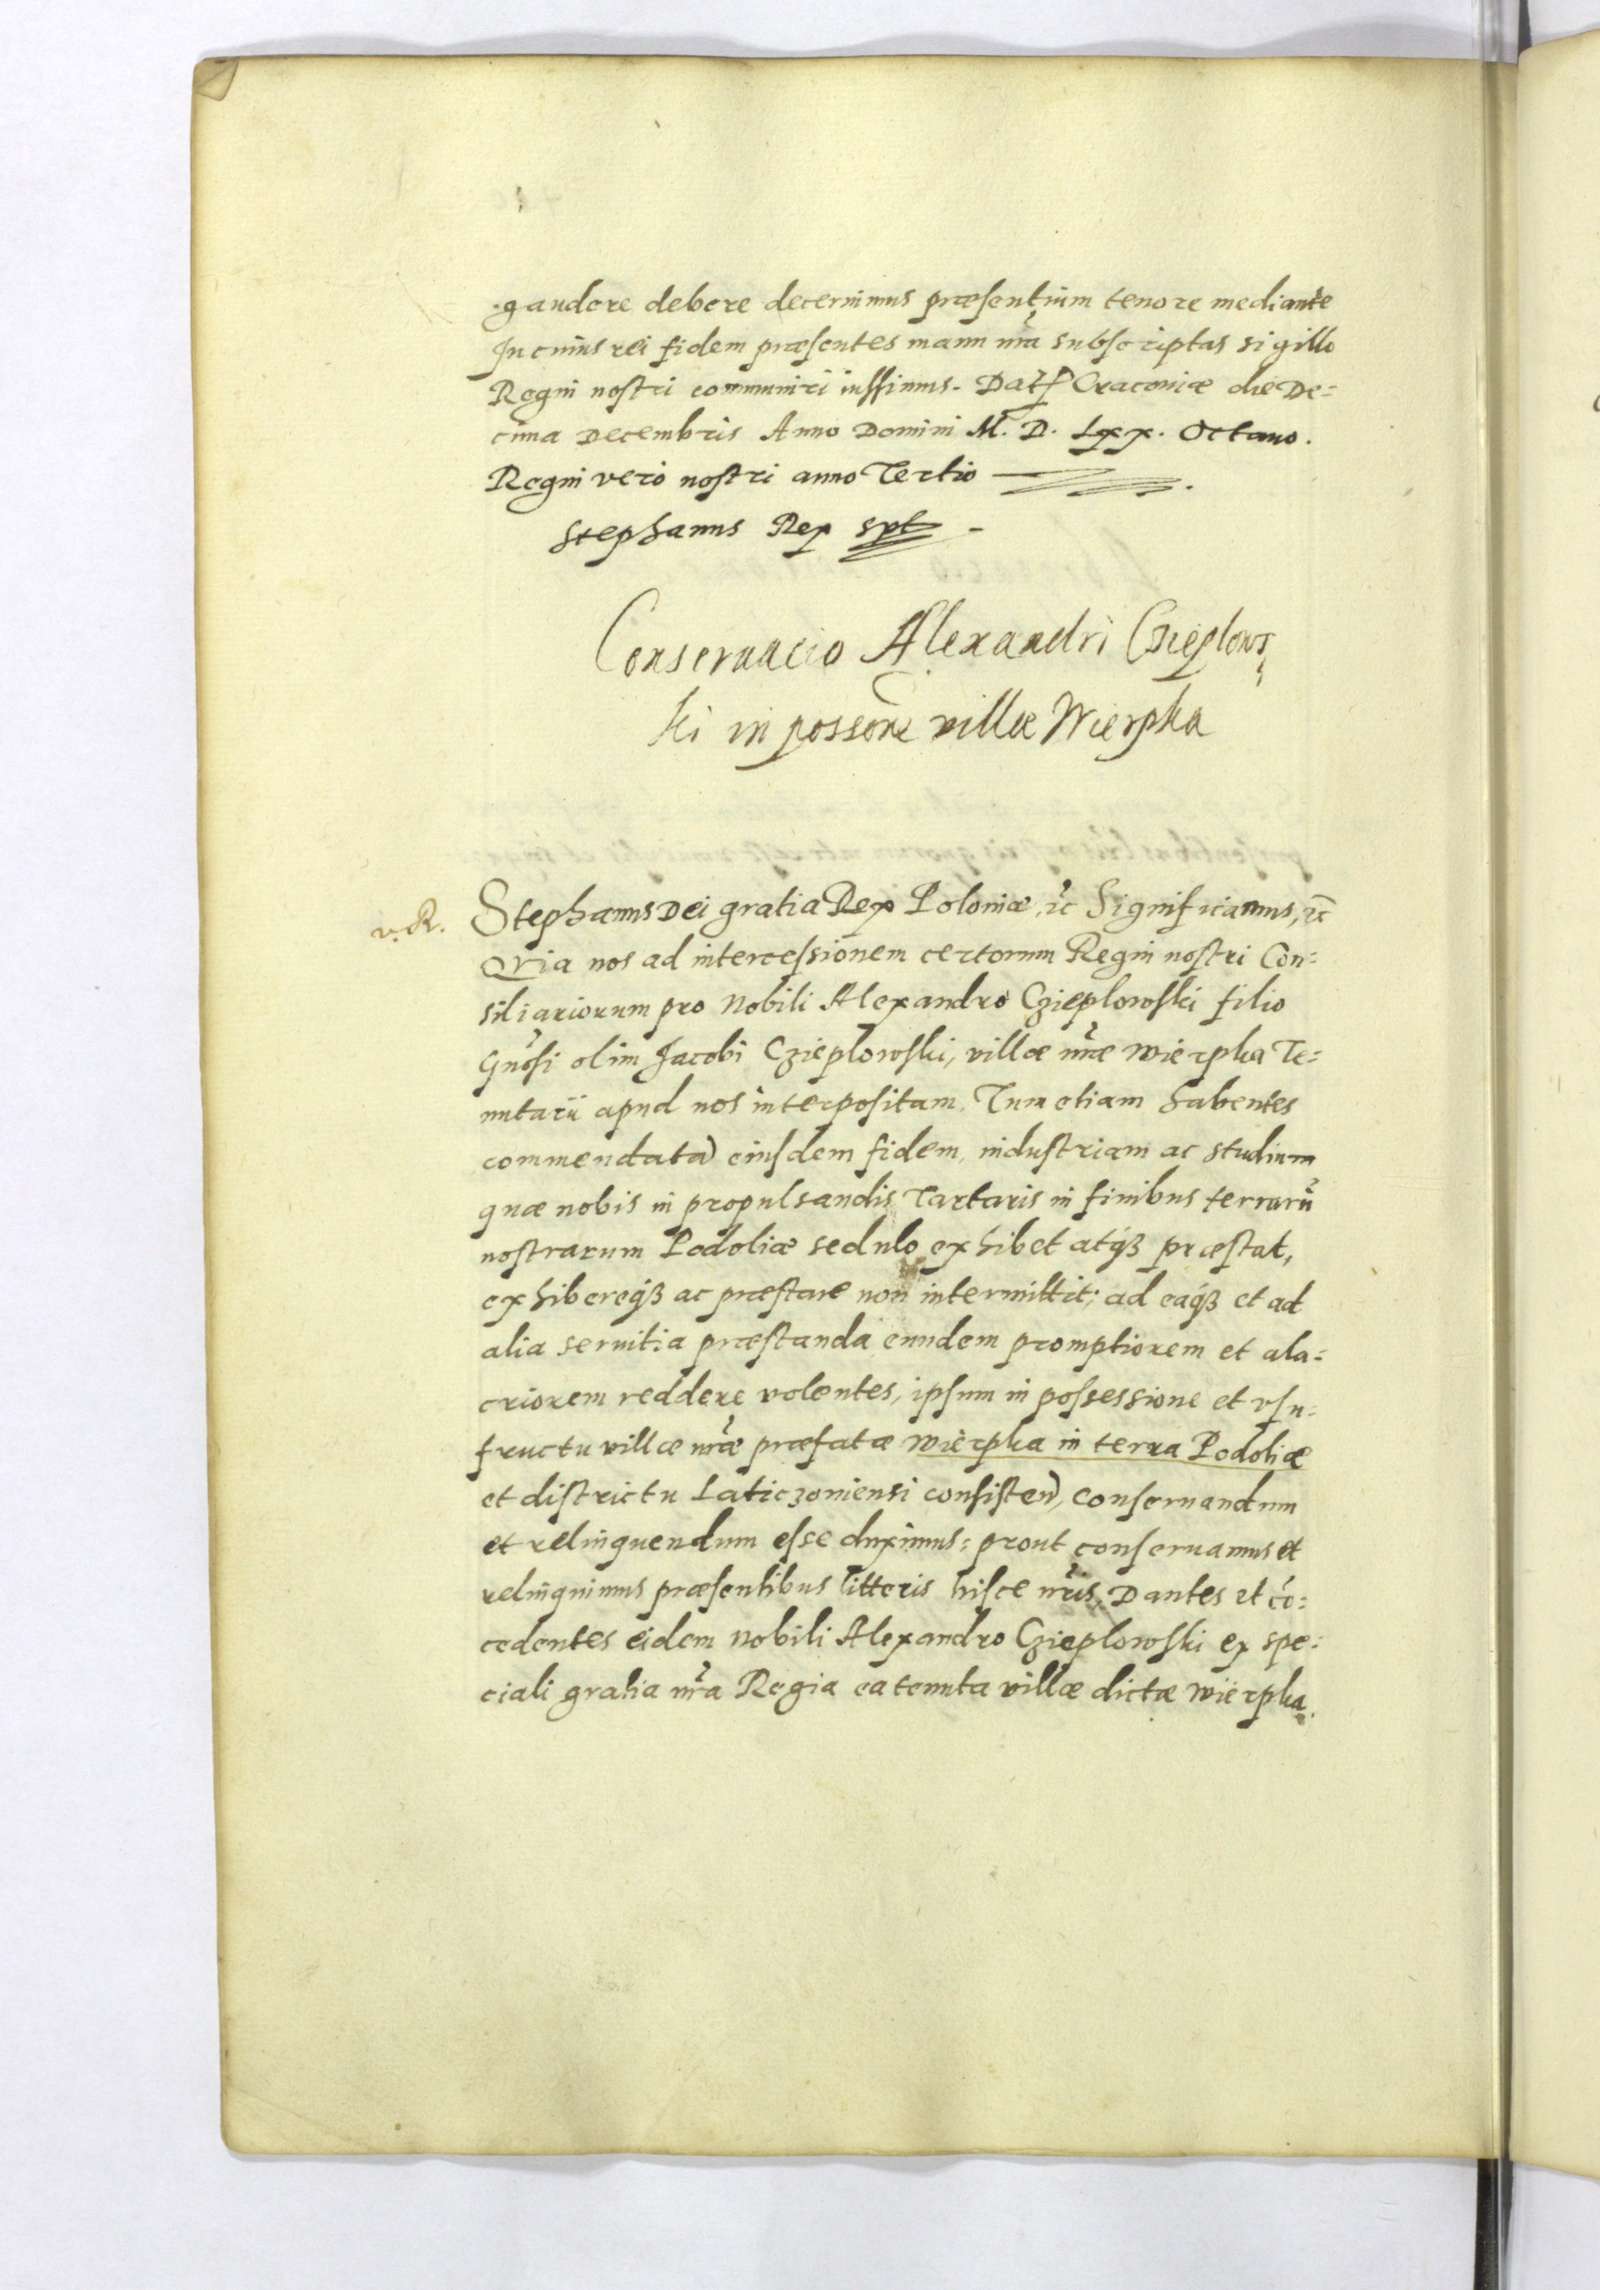 gaudere debere decernimus præsentium tenore mediante
In cuius rei fidem præsentes manu nr̃a subscriptas sigillo
Regni nostri communiri iussimus. Dat Cracouiæ die De=
cima Decembris Anno Domini M. D. Lxx. Octauo.
Regni vero nostri anno Tertio
Stephanus Rex spt
Conseruacio Alexandri Czieplows,
ki in possone villæ Wierpka
v. R.
Stephanus Dei gratia Rex Poloniæ, ꝛc Significamus, ꝛc
Qvia nos ad intercessionem certorum Regni nostri Con=
siliariorum pro Nobili Alexandro Czieplowski filio
Gnosi olim Jacobi Czieplowski, villæ nr̃æ Wierpka Te=
nutarii apud nos interpositam. Tum etiam habentes
commendatã eiusdem fidem, industriam ac studium
quæ nobis in propulsandis Tartaris in finibus terrarũ
nostrarum Podoliæ sedulo exhibet atqꝫ præstat,
exhibereqꝫ ac præstare non intermittit; ad eaqꝫ et ad
alia seruitia præstanda eundem promptiorem et ala=
criorem reddere volentes, ipsum in possessione et vsu=
fructu villæ nr̃æ præfatæ Wierpka in terra Podoliæ
et districtu Laticzouiensi consisteñ, conseruandum
et relinquendum esse duximus: prout conseruamus et
relinquimus præsentibus litteris hisce nr̃is, Dantes et cõ=
cedentes eidem Nobili Alexandro Czieplowski ex spe=
ciali gratia nr̃a Regia ea tenuta villæ dictæ Wierpka.